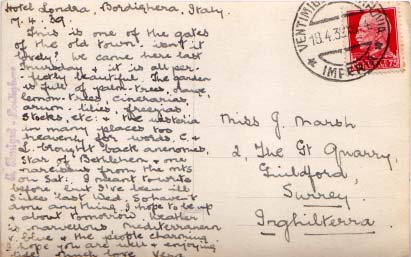 Hotel Londra, Bordighera, Italy.
17.4.39.
This is one of the gates
of the old town. isn't it
lovely? We came here last
Thursday & it is all per-
-fectly beautiful. The garden
is full of palm-trees,
lemon-trees, cinerarias,
arum-lilies, freezias,
stocks, etc: & the wistaria
in many places too
heavenly for words. C. &
I. brought back anemones,
Star of Bethlehem & one
narcissus from the mts
on Sat. I meant to write
before, but I've been ill
since last Wed, so haven't
done anything. I hope to be up
& about tomorrow. Weather
is marvellous, mediterranean
blue & the people charming
I hope you are well & enjoying
much love Vera
Miss G. Marsh
2, The Gt Quarry,
Guildford,
Surrey
Inghilterra.
VENTIMIGLIA
18.4.39
IMPERIA